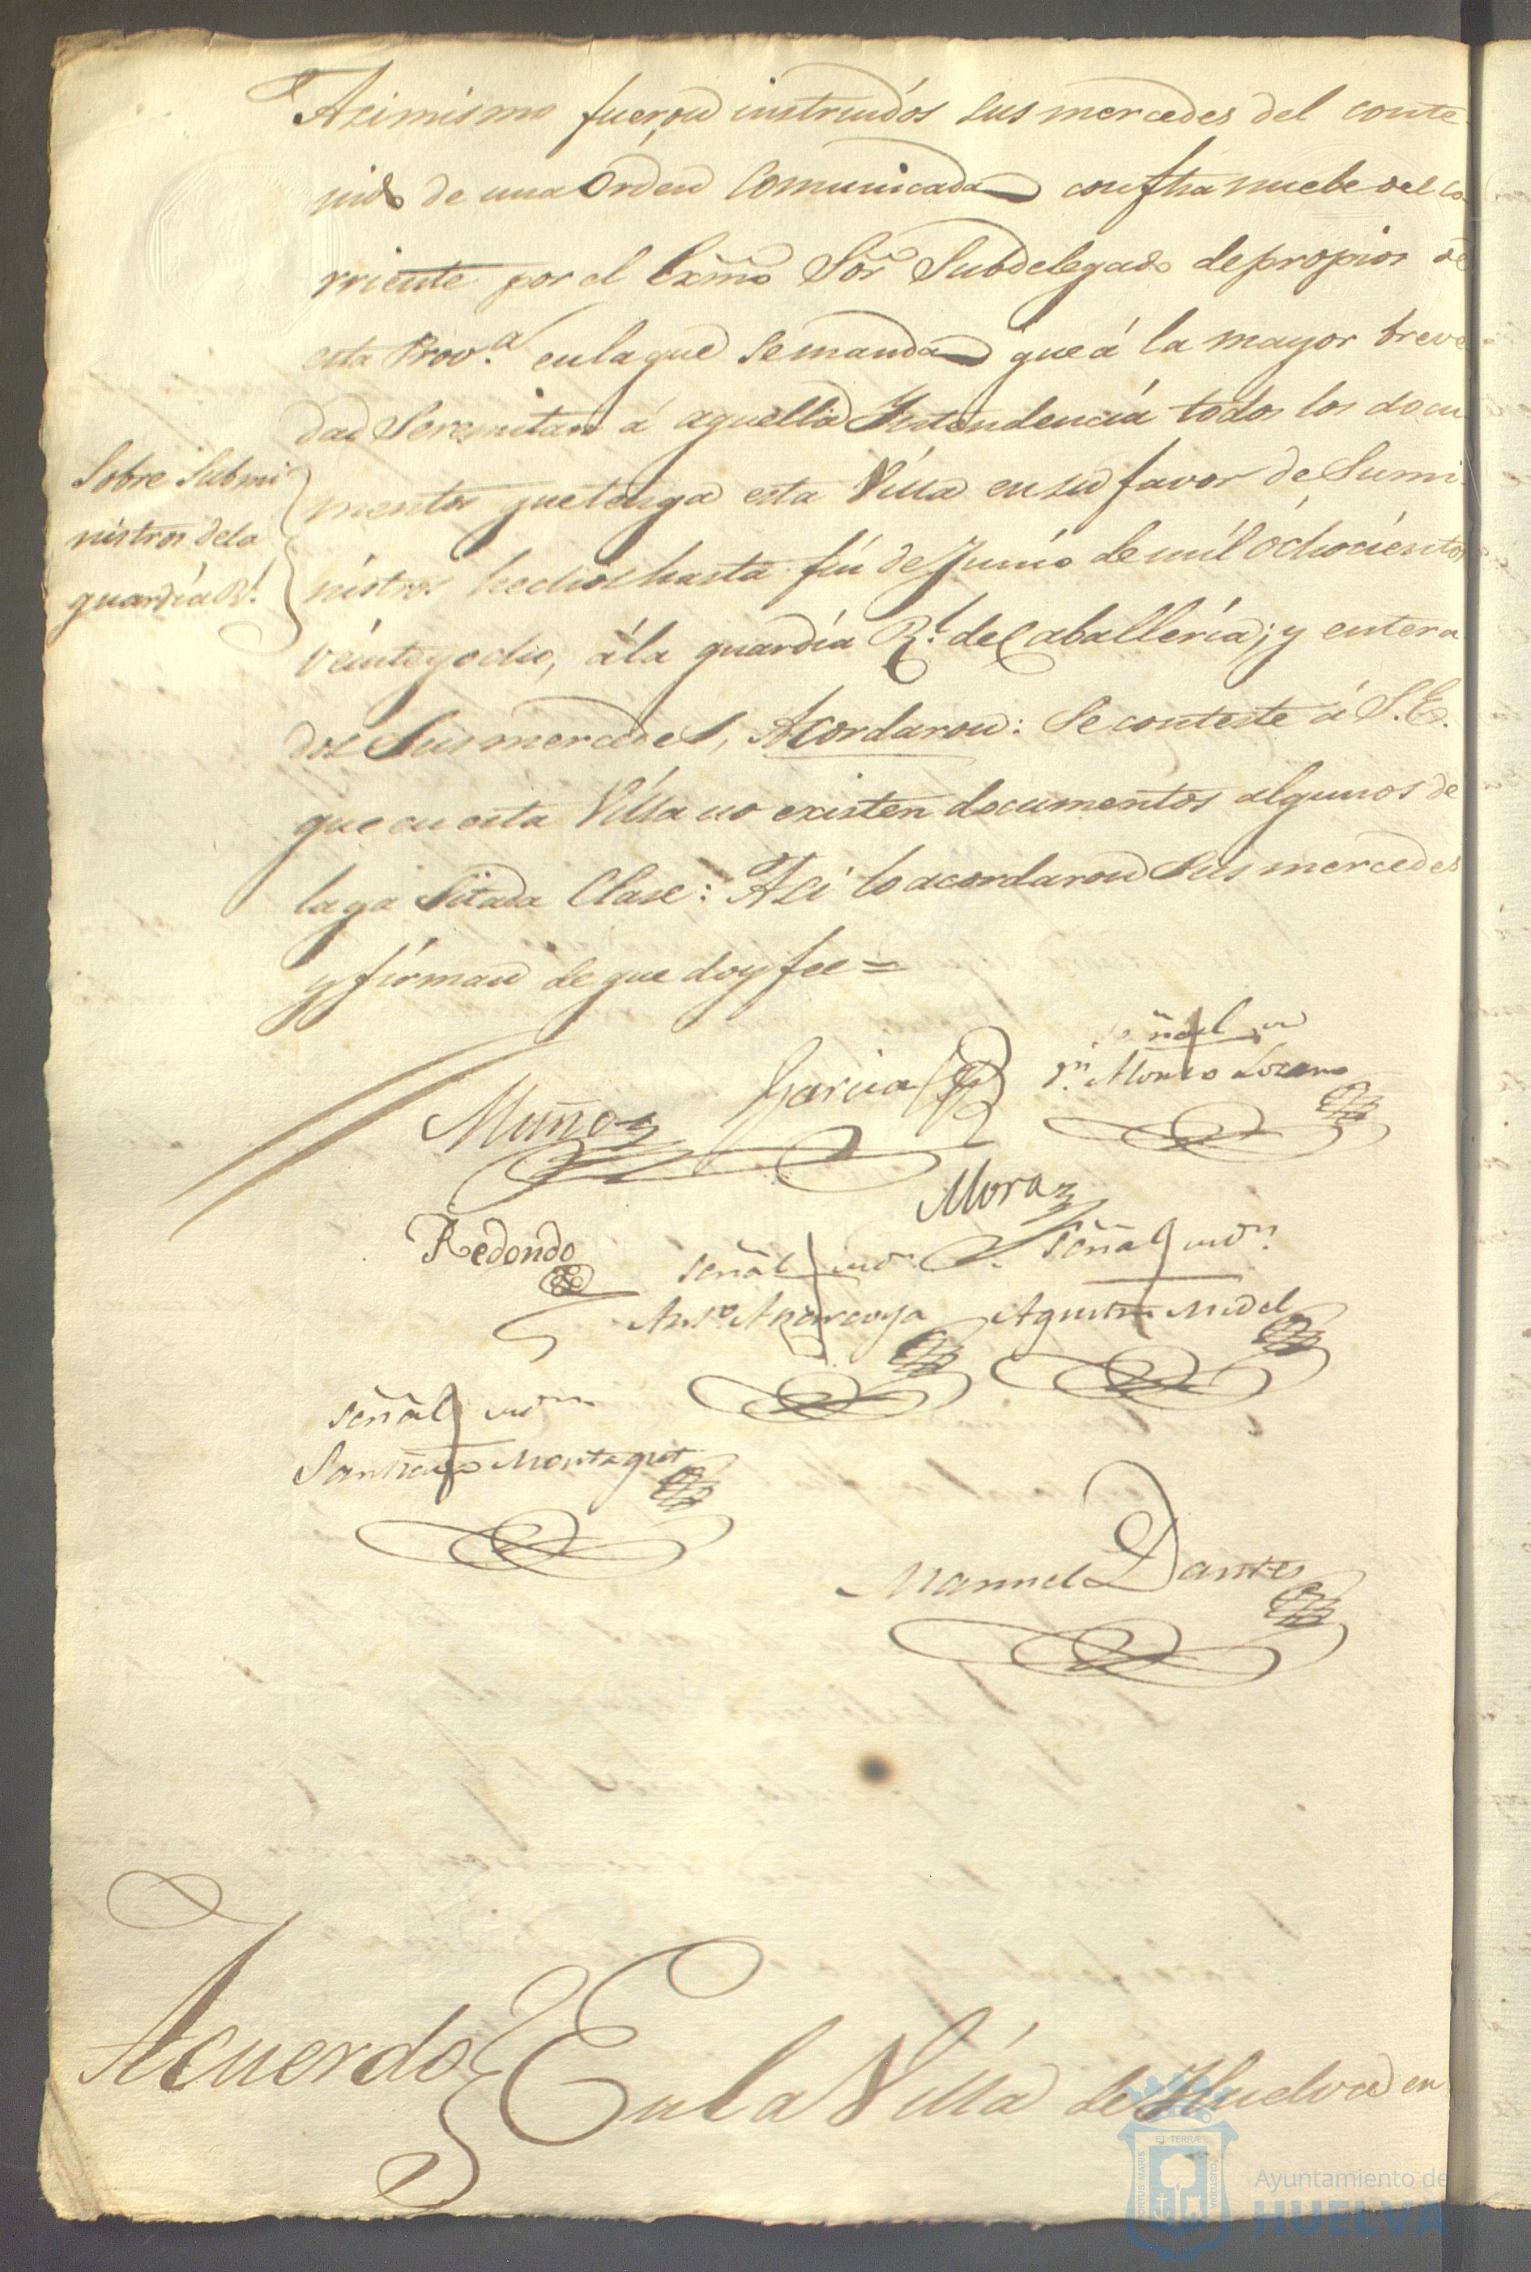 Asimismo fueron instruidos sus mercedes del conte
nido de una Orden Comunicada con fha nuebe del co
rriente por el Exmo Sor Subdelegado de propios de
esta Prov.a en la que se manda que á la mayor breve
dad Se remitan á aquella Yntendencia todos los docu
mentos que tenga esta Villa en su favor de Sumi
nistros hechos hasta fin de Junio de mil Ochocientos
veinte y ocho, á la guardia R.l de Caballería; y entera
dos Sus mercedes, Acordaron: Se conteste á S.E.
que en esta Villa no existen documentos algunos de
la ya Sitada Clase: Asi lo acordaron Sus mercedes
y firman de que doy fee =
Sobre Submi
nistros de la
guardia R.l
Muñoz
Garcia
Señal
Dn. Alonso Lozano
Redondo
Mora
Señal
Anto.
Señal
Agustin Midel
Señal
Santiago Montagut
Manuel Dantes
Acuerdo En la Villa de Huelva en
ET TERRÆ
CUSTODIA
PORTUS MARIS
Ayuntamiento de
HUELVA